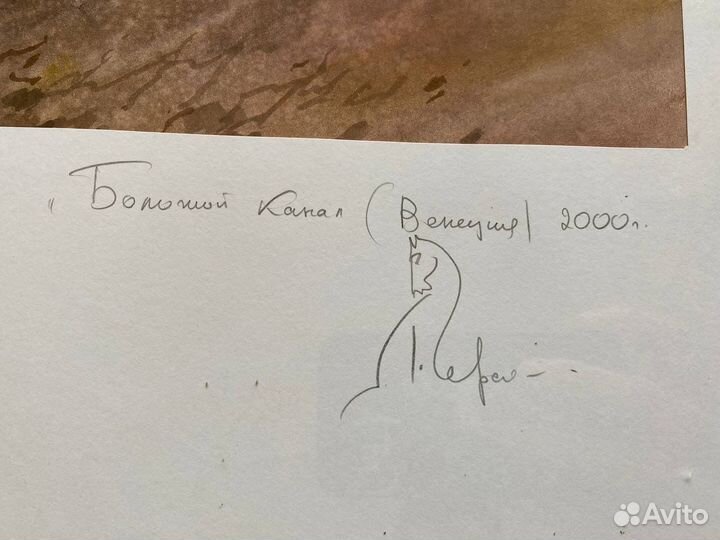 „Большой канал (Венеция) 2000г.
Avito